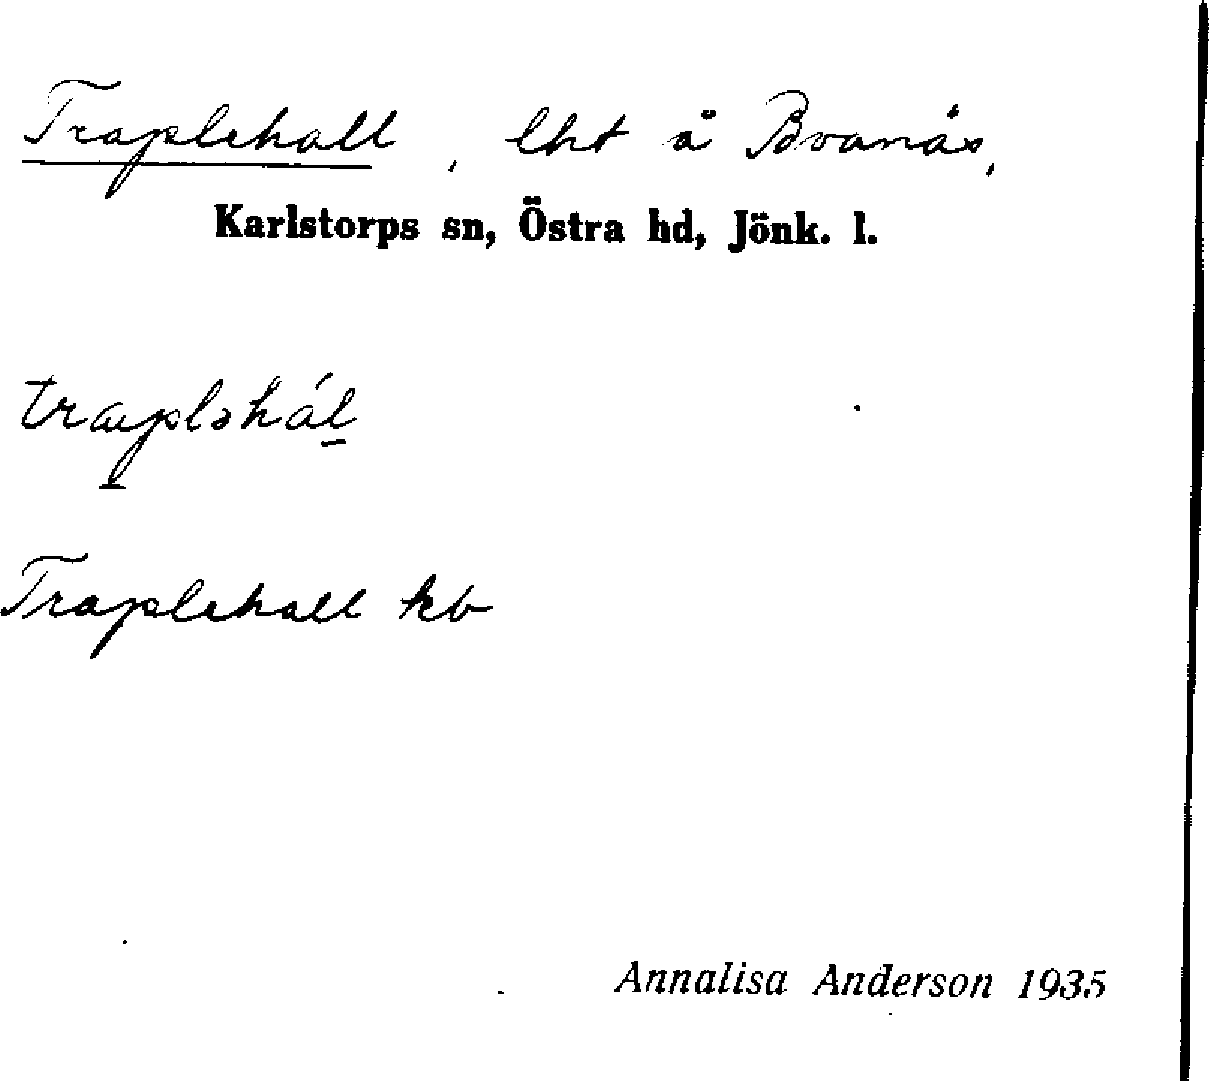 Traplehall, lht å Boanäs,
Karlstorps sn, Östra hd, Jönk. l.
Traplehall kb
Annalisa Anderson 1935